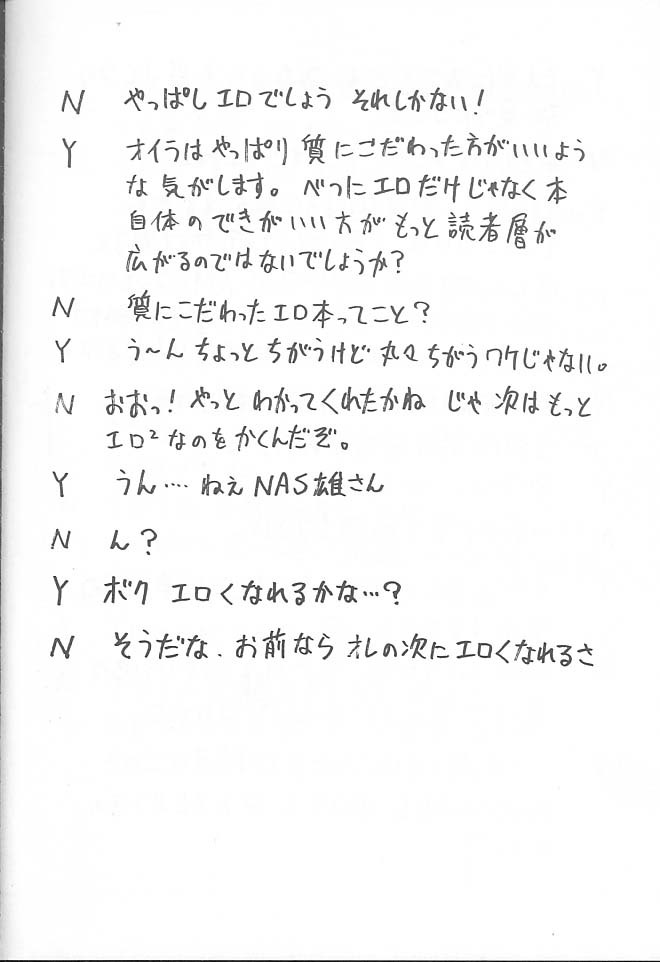 N やっぱしエロでしょう それしかない!
Y オイラはやっぱり質にこだわった方がいいよう
な気がします。べつにエロだけじゃなく本
自体のできがいい方がもっと読者層が
広がるのではないでしょうか?
N 質にこだわったエロ本ってこと?
Y う〜ん ちょっとちがうけど 丸々ちがうワケじゃない。
N おおっ! やっとわかってくれたかね じゃ次はもっと
エロ²なのをかくんだぞ。
Y うん…. ねぇNAS雄さん
N ん?
Y ボク エロくなれるかな…?
N そうだな、お前ならオレの次にエロくなれるさ